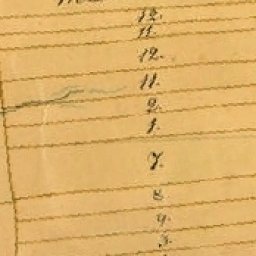 12.
11.
12.
11.
2.
1.
7.
8
9.
3.